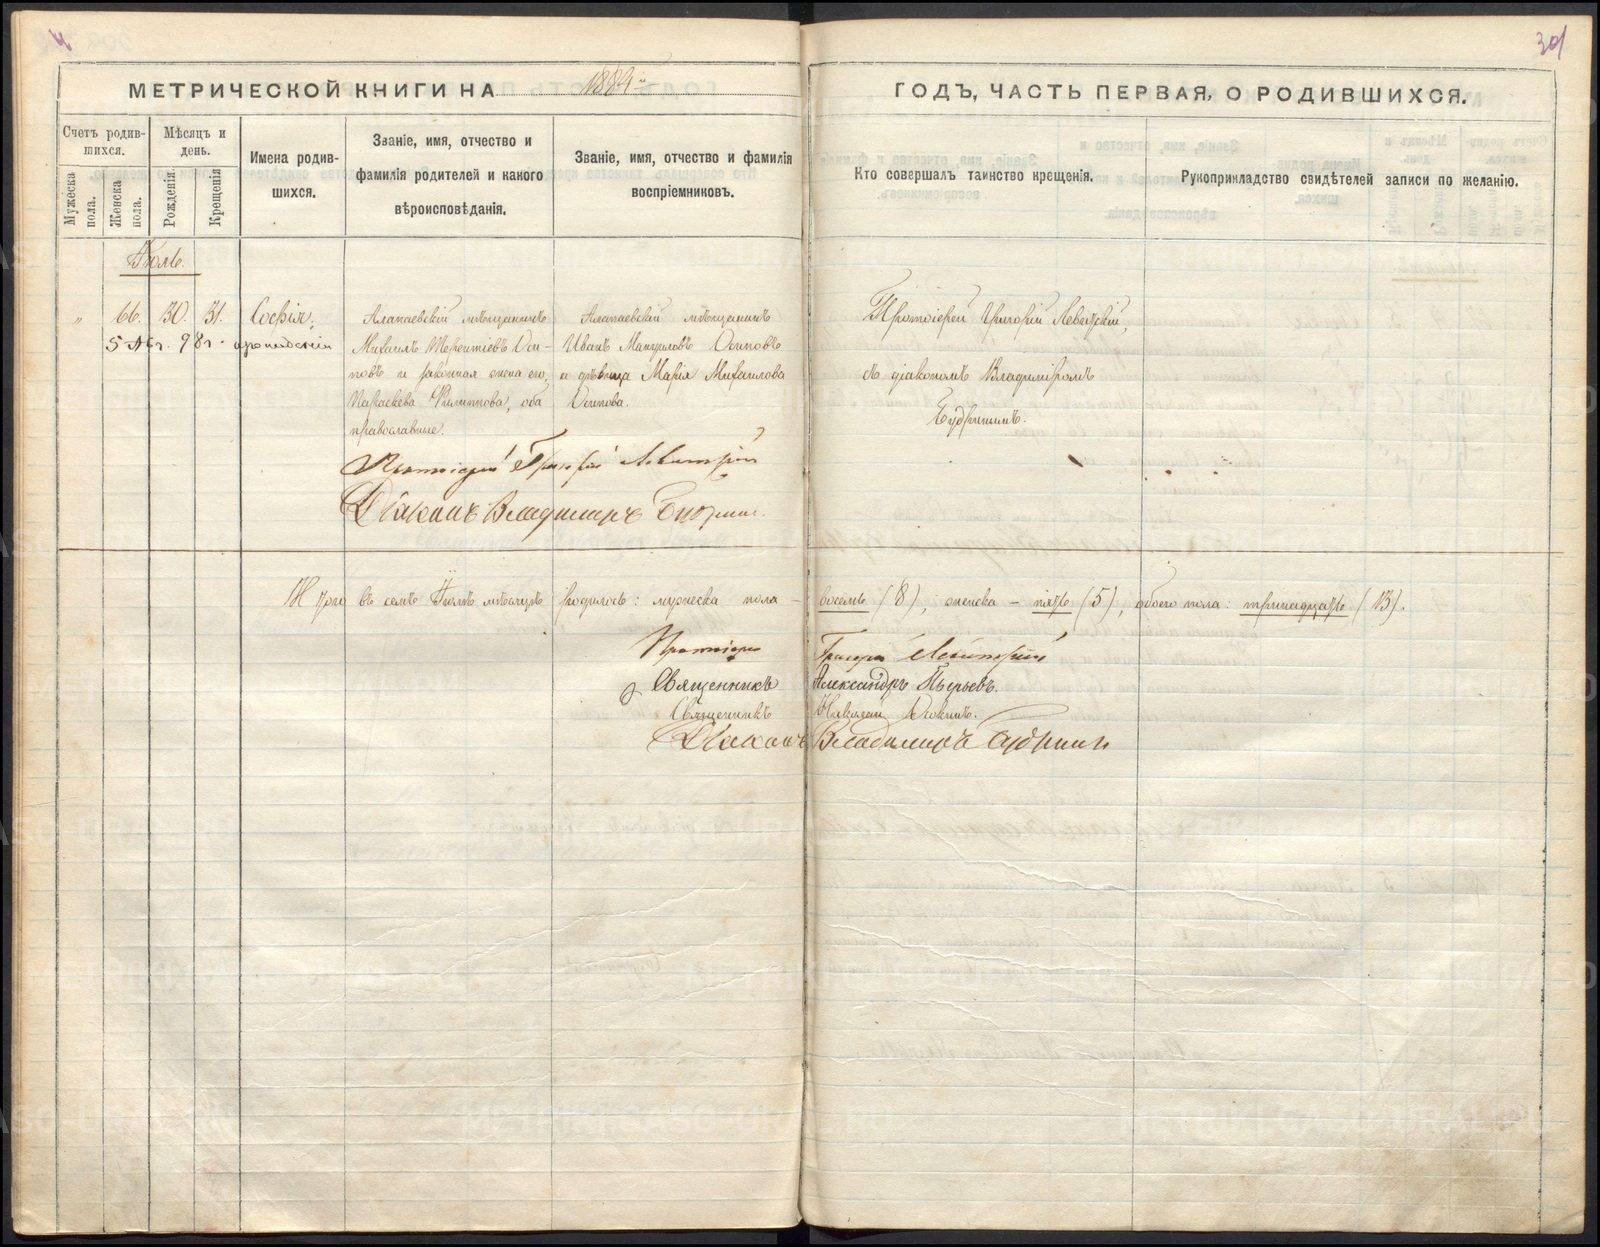 30
МЕТРИЧЕСКОЙ КНИГИ НА 1884й
ГОДЪ, ЧАСТЬ ПЕРВАЯ, О РОДИВШИХСЯ.
Счетъ родив-
шихся.
Мужеска пола.
Женска пола.
Мѣсяцъ и
день.
Рожденія.
Крещенія
Имена родив-
шихся.
Званіе, имя, отчество и
фамилія родителей и какого
вѣроисповѣданія.
Званіе, имя, отчество и фамилія
воспріемниковъ.
Кто совершалъ таинство крещенія.
Рукоприкладство свидѣтелей записи по желанію.
Іюль.
" 66. 30. 31. Софія;
Алапаевскій мѣщанинъ
Михаилъ Терентіевъ Оси-
повъ и законная жена его,
Параскева Филиппова, оба
православные.
Алапаевскій мѣщанинъ
Иванъ Осиповъ
и дѣвица Марія Михаилова
Осипова.
Протоіерей Григорій Левитскій,
съ діакономъ Владиміромъ
Будринымъ.
Протоіерей Григорій Левитскій
Діаконъ Владимиръ Будринъ.
Итого въ семъ Іюлѣ мѣсяцѣ родилось: мужеска пола – восемь (8), женска – пять (5), обоего пола: тринадцать (13).
Протоіерей Григорій Левитскій
Священникъ Александръ
Священникъ Николай
Діаконъ Владимиръ Будринъ